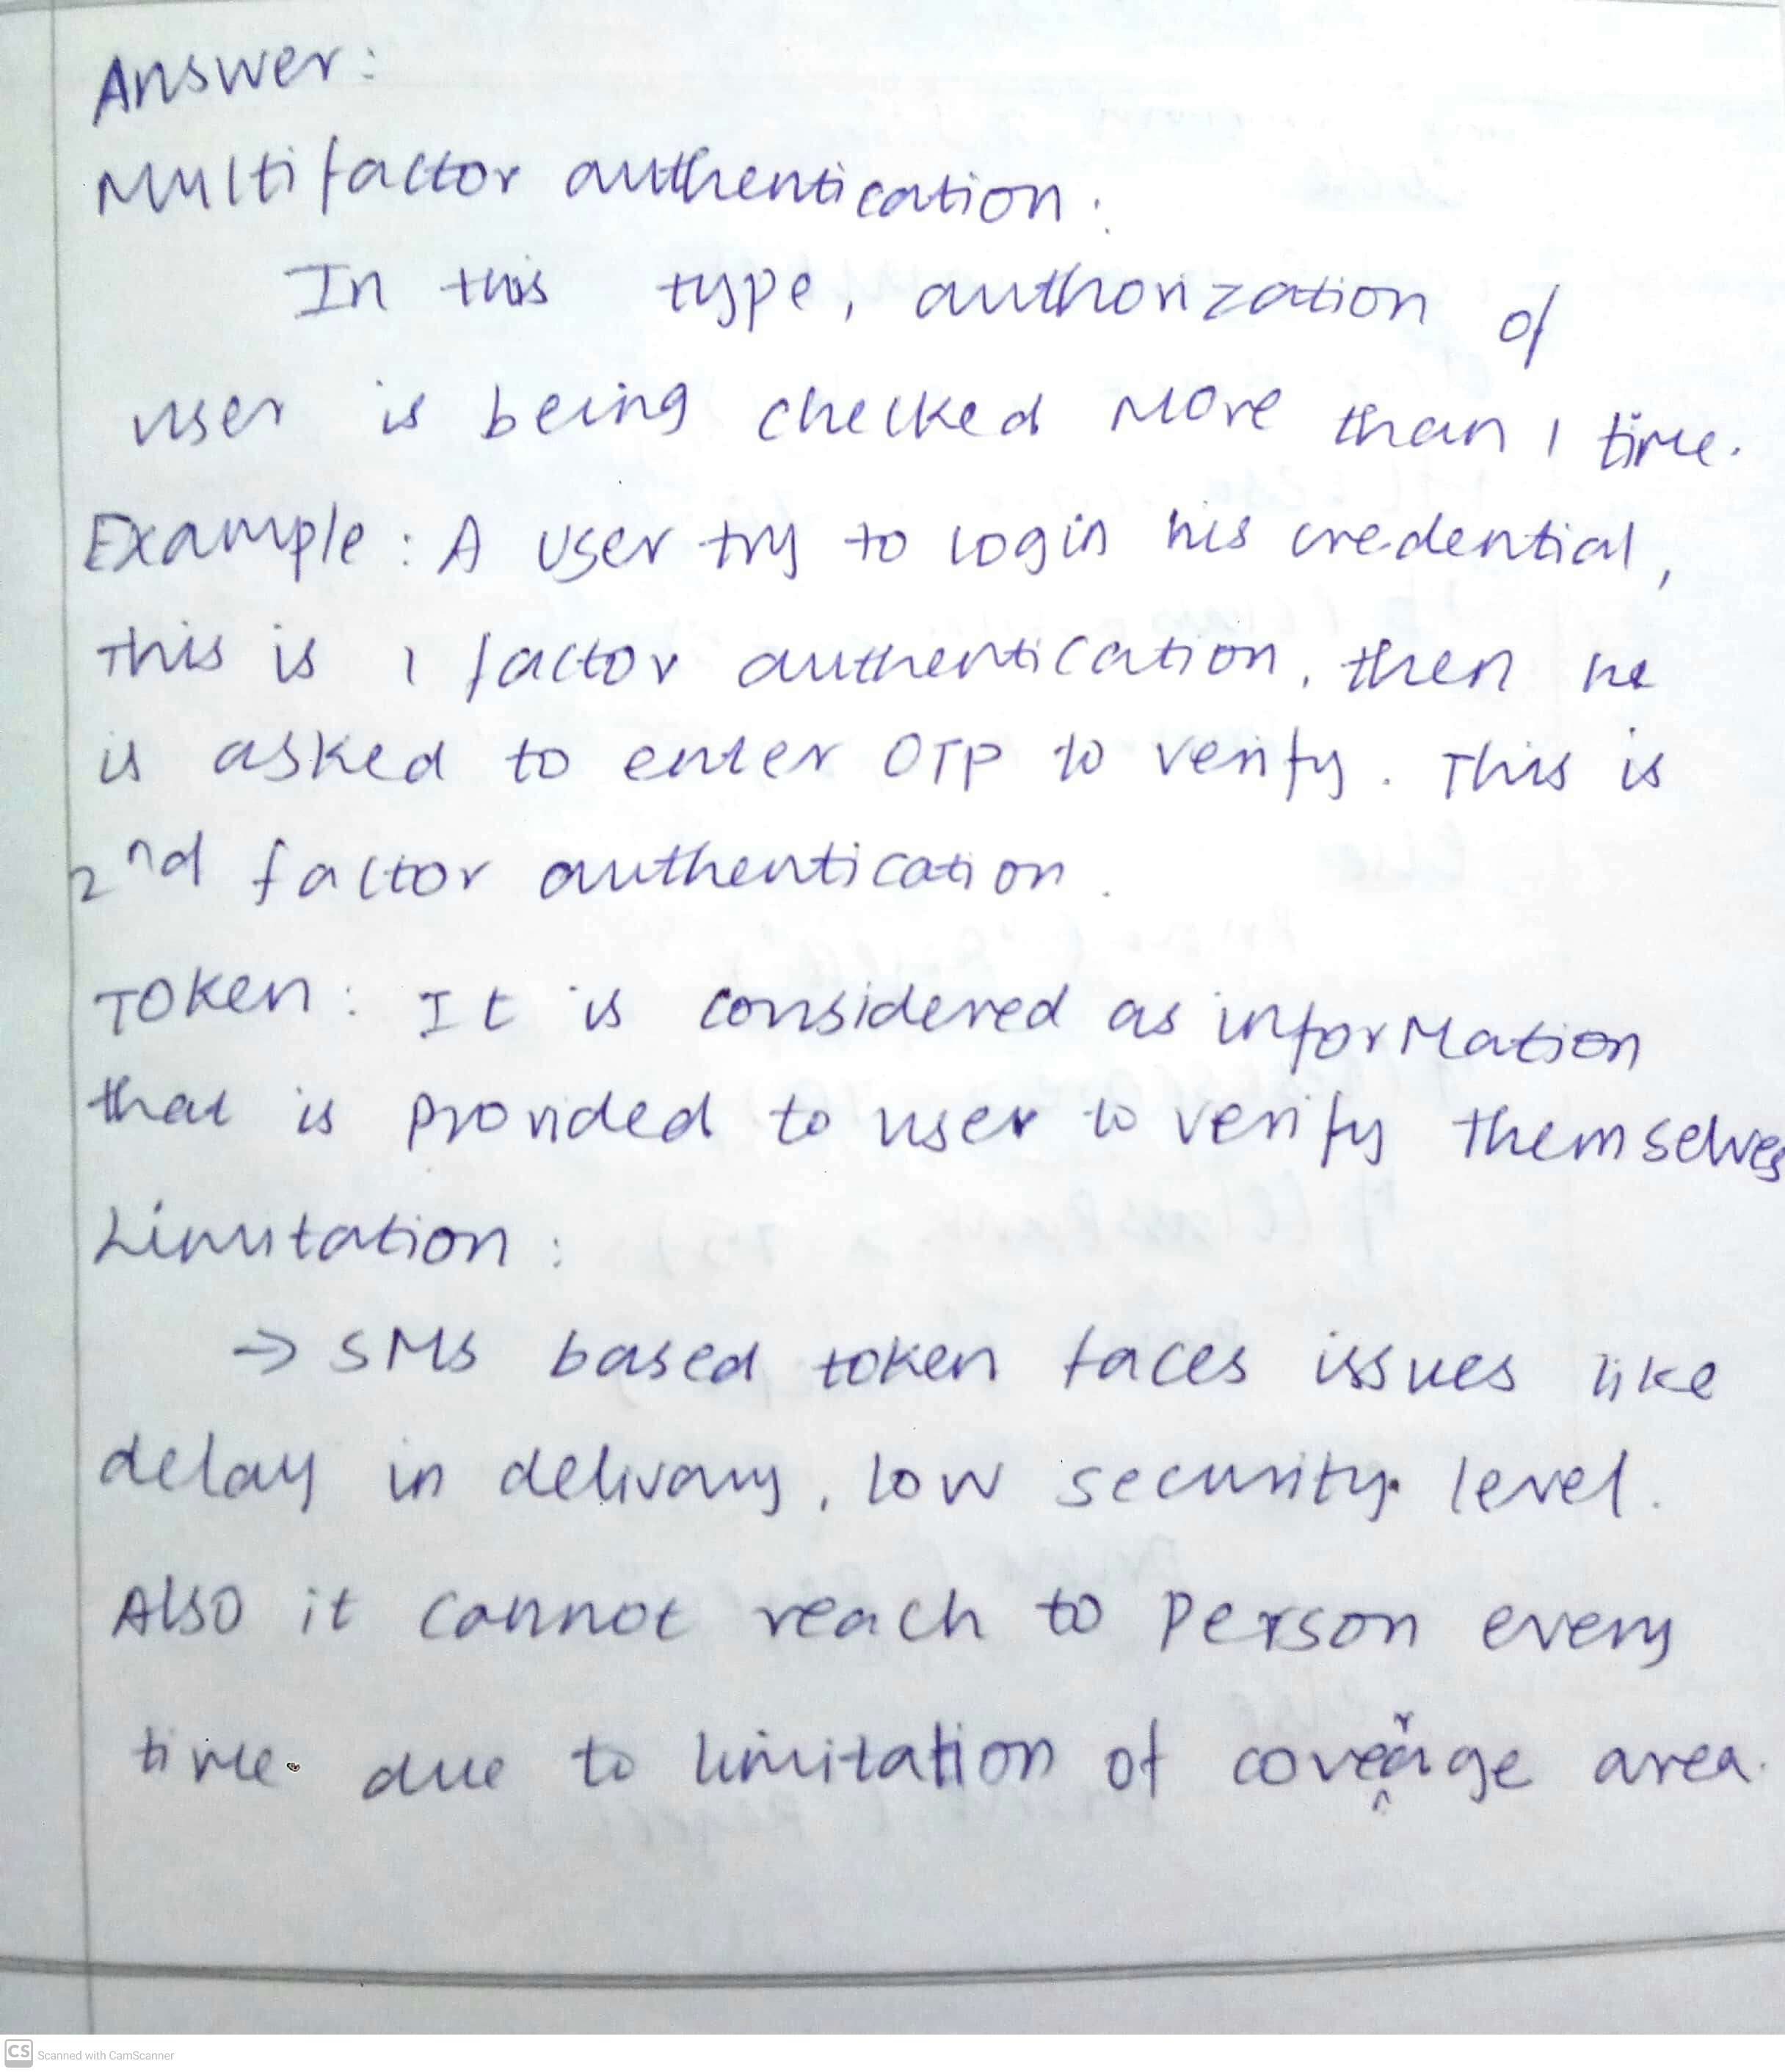 Answer:
Multifactor authentication:
In this type, authorization of
user is being checked more than 1 time.
Example: A user try to login his credential,
This is 1 factor authentication, then he
is asked to enter OTP to verify. This is
2nd factor authentication.
Token: It is considered as information
that is provided to user to verify themselves
Limitation:
→ SMS based token faces issues like
delay in delivary, low security level.
Also it cannot reach to person every
time due to limitation of coverage area.
CS Scanned with CamScanner